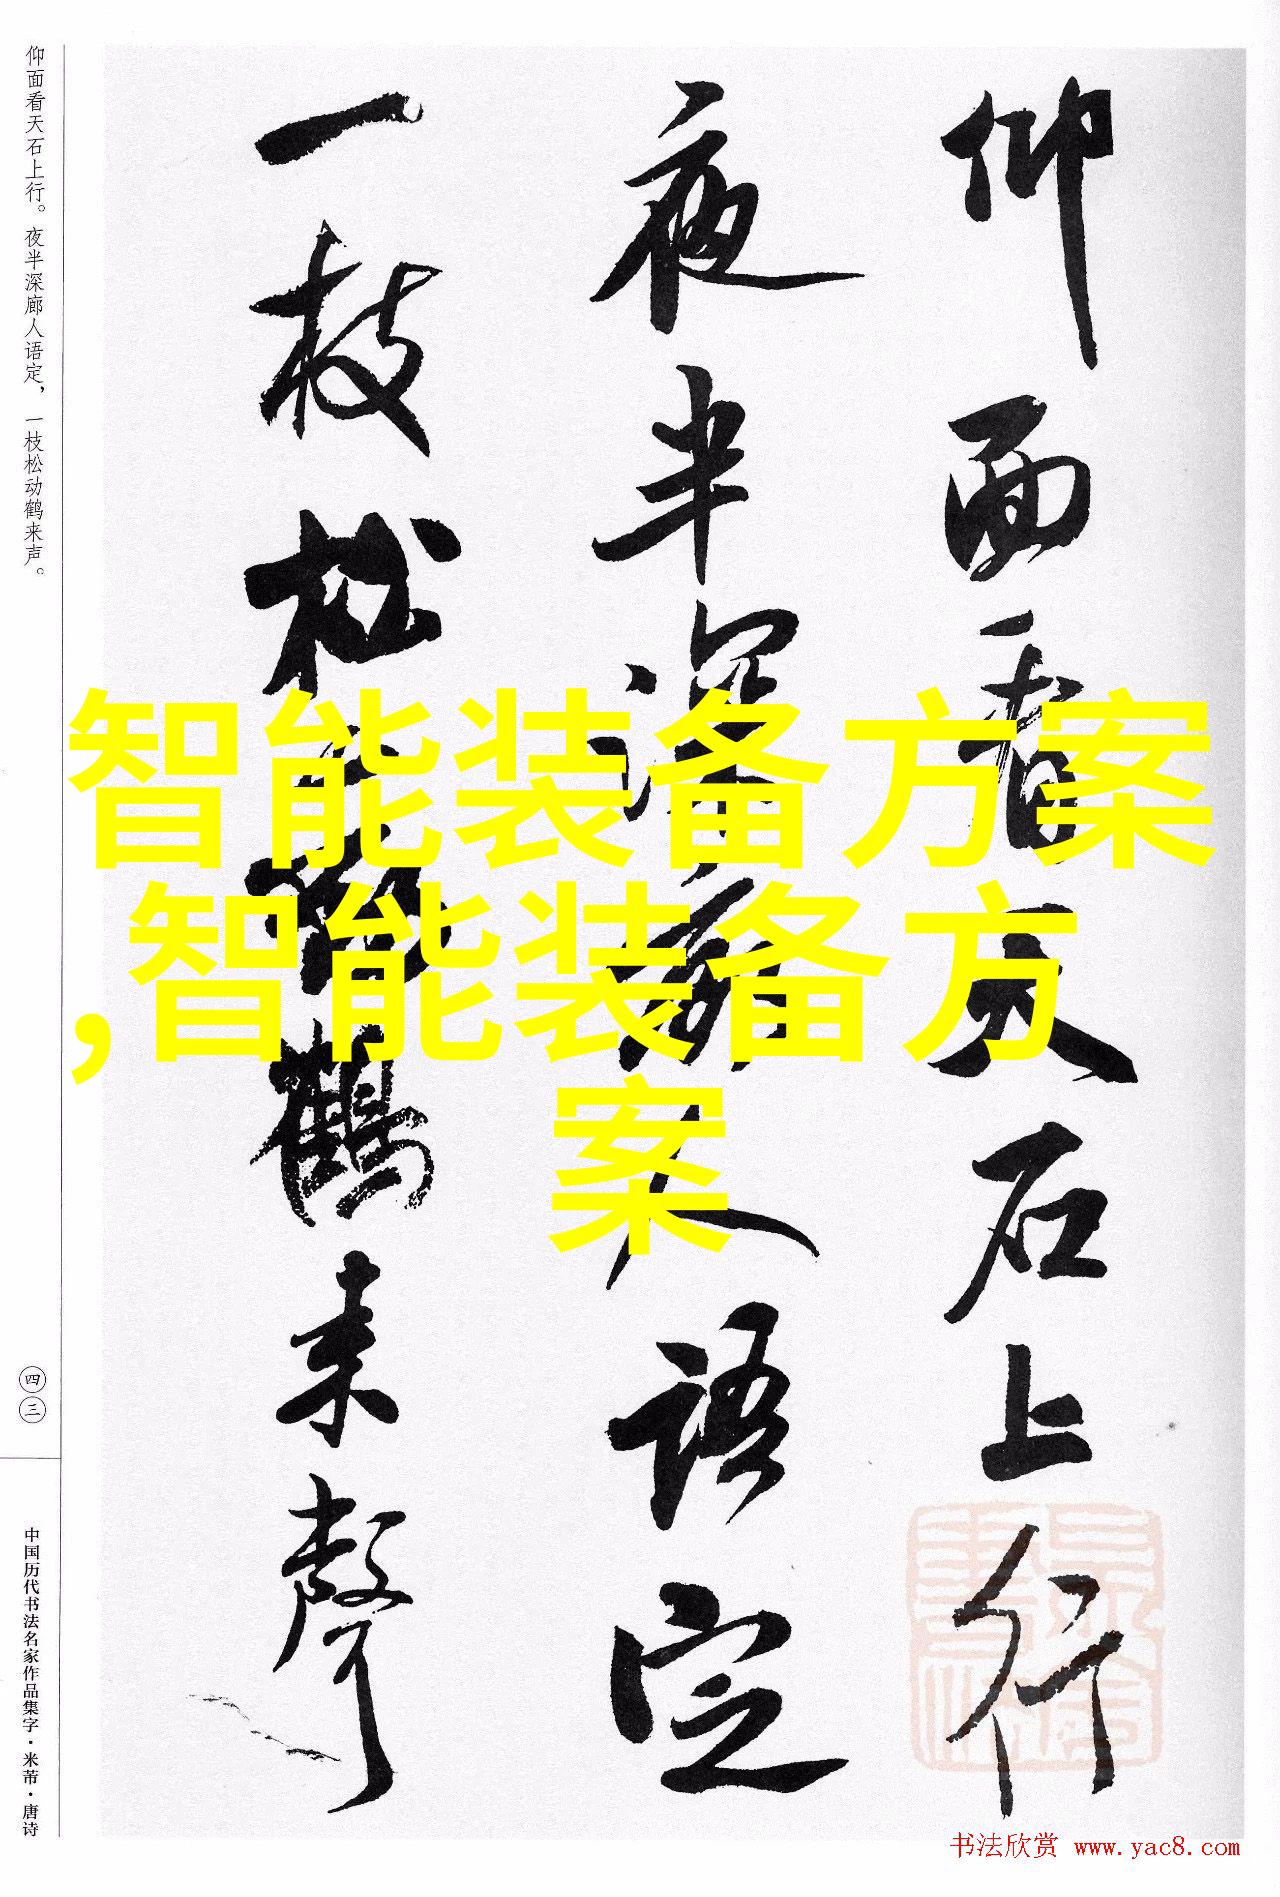 仰面看天石上行
夜半深廊人语定
一枝松动鹤来聲
仰面看天石上行。夜半深廊人语定，一枝松动鹤来声。
四三
中国历代书法名家作品集字·米芾·唐诗
智能装备方案
,智能装备方
案
书法欣赏 www.yac8.com